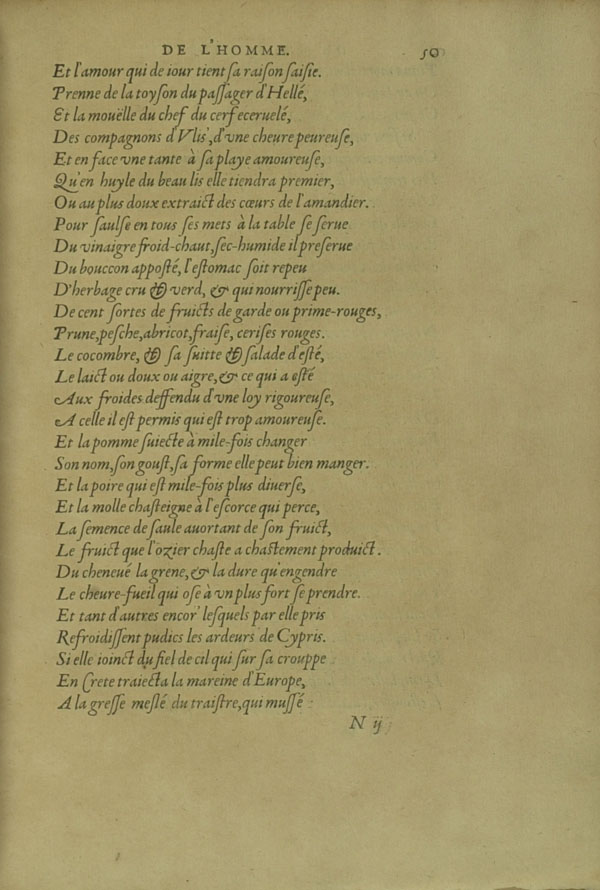 DE L'HOMME. 50
Et l'amour qui de iour tient sa raison saisie.
Prenne de la toyson du passager d'Hellé,
Et la mouëlle du chef du cerf eceruelé,
Des compagnons d'Vlis', d'vne cheure peureuse,
Et en face vne tante à sa playe amoureuse,
Qu'en huyle du beau lis elle tiendra premier,
Ou au plus doux extraict des cœurs de l'amandier.
Pour saulse en tous ses mets à la table se serue
Du vinaigre froid-chaut, sec-humide il preserue
Du bouccon apposté, l'estomac soit repeu
D'herbage cru & verd, & qui nourrisse peu.
De cent sortes de fruicts de garde ou prime-rouges,
Prune, pesche, abricot, fraise, cerises rouges.
Le cocombre, & sa suitte & salade d'esté,
Le laict ou doux ou aigre, & ce qui a esté
Aux froides deffendu d'vne loy rigoureuse,
A celle il est permis qui est trop amoureuse.
Et la pomme suiecte à mile-fois changer
Son nom, son goust, sa forme elle peut bien manger.
Et la poire qui est mile-fois plus diuerse,
Et la molle chasteigne à l'escorce qui perce,
La semence de saule auortant de son fruict,
Le fruict que l'ozier chaste a chastement produict.
Du cheneué la grene, & la dure qu'engendre
Le cheure-fueil qui ose à vn plus fort se prendre.
Et tant d'autres encor' lesquels par elle pris
Refroidissent pudics les ardeurs de Cypris.
Si elle ioinct du fiel de cil qui sur sa crouppe
En Crete traiecta la mareine d'Europe,
A la gresse meslé du traistre, qui mussé
N ij